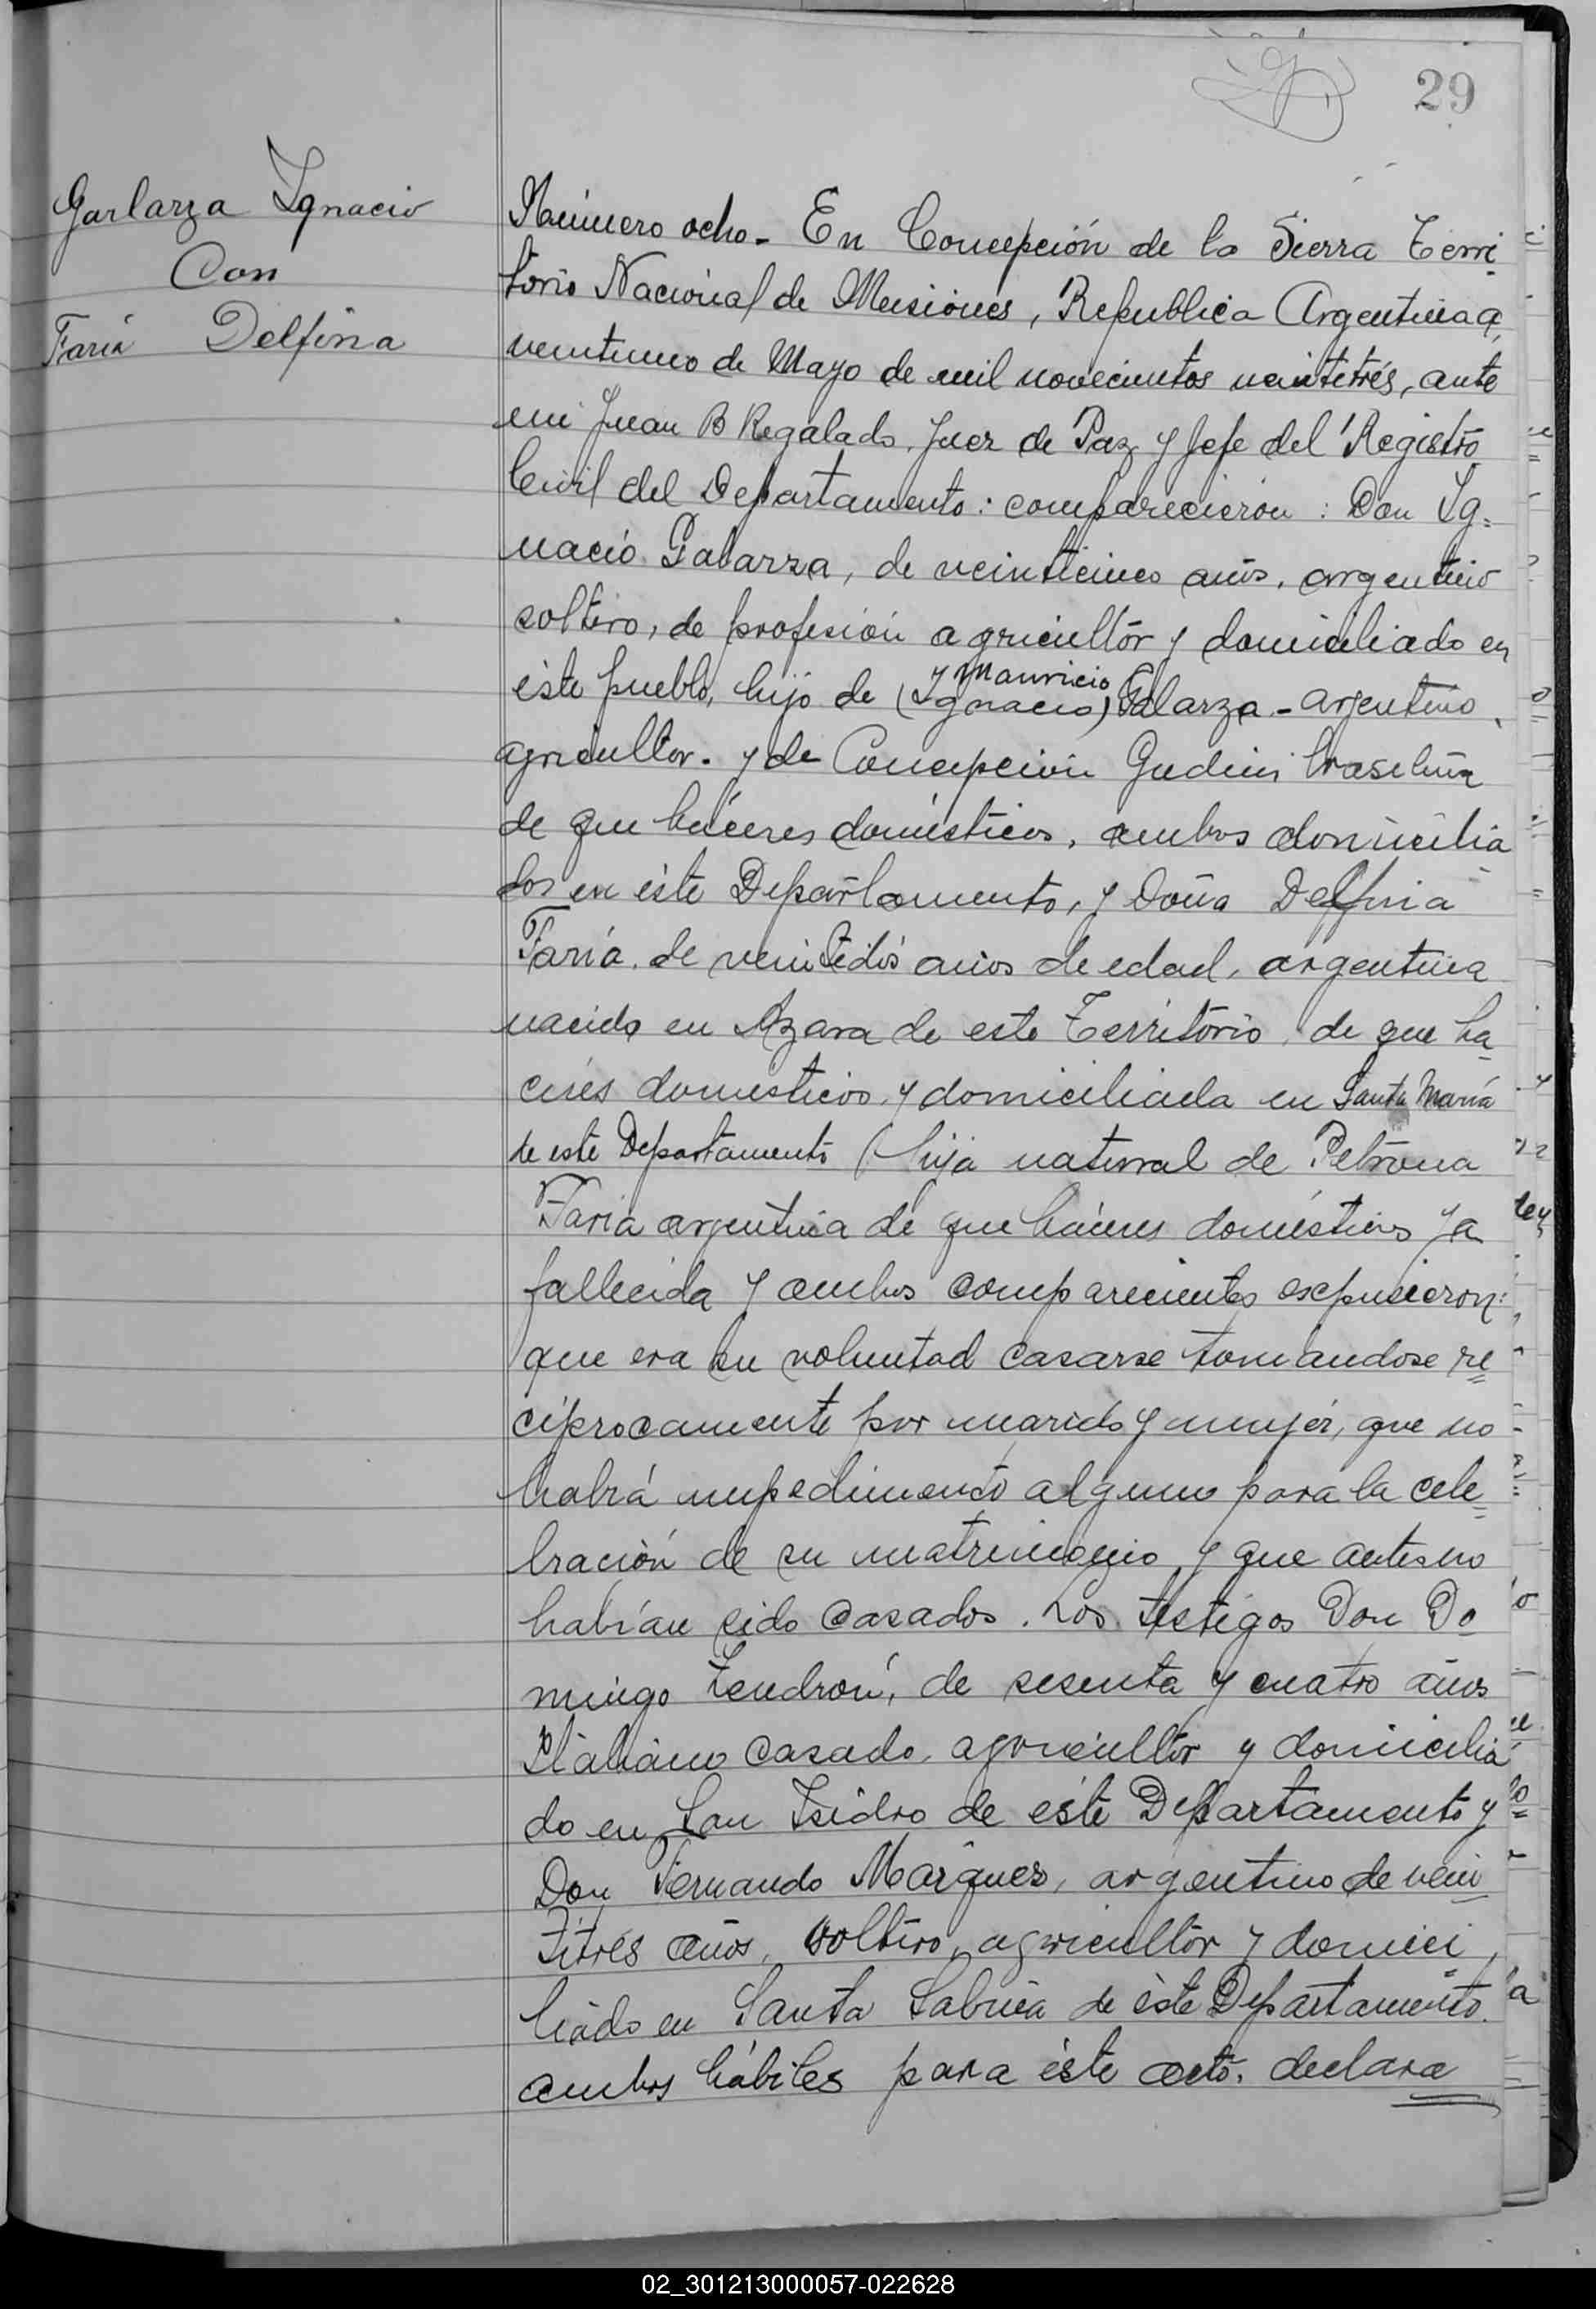 29
Garlarza Ignacio
Con
Faria Delfina
Número ocho - En Concepción de la Sierra Terri
torio Nacional de Misiones, Republica Argentina a
veintiuno de Mayo de mil novecientos veintitrés, ante
mi Juan B Regalado, Juez de Paz y Jefe del Registro
Civil del Departamento: comparecieron: Don Ig=
nacio Galarza, de veinticinco años, argentino
soltero, de profesión agricultor y domiciliado en
éste pueblo, hijo de (Ignacio) Mauricio Galarza - argentino,
agricultor. y de Concepción brasileña
de que háceres domésticos, ambos domicilia
dos en éste Departamento, y Doña Delfina
Faria, de veintidós años de edad, argentina
nacida en Azara de este Territorio, de que ha
ceres domesticos, y domiciliada en Santa María
de este Departamento (hija natural de Petrona
Faria argentina de que háceres domésticos ya
fallecida y ambos comparecientes expusieron:
que era su voluntad casarse tomandose re
ciprocamente por marido y mujer, que no
habrá impedimento alguno para la cele
bración de su matrimonio y que antes no
habían sido casados. Los testigos Don Do
mingo Zendron, de sesenta y cuatro años
Italiano casado, agricultor y domicilia
do en San Isidro de éste Departamento y
Don Fernando Marques, argentino de vein
titrés años, soltero, agricultor y domici
liado en Santa de éste Departamento.
ambos hábiles para éste acto, declara
02_301213000057-022628